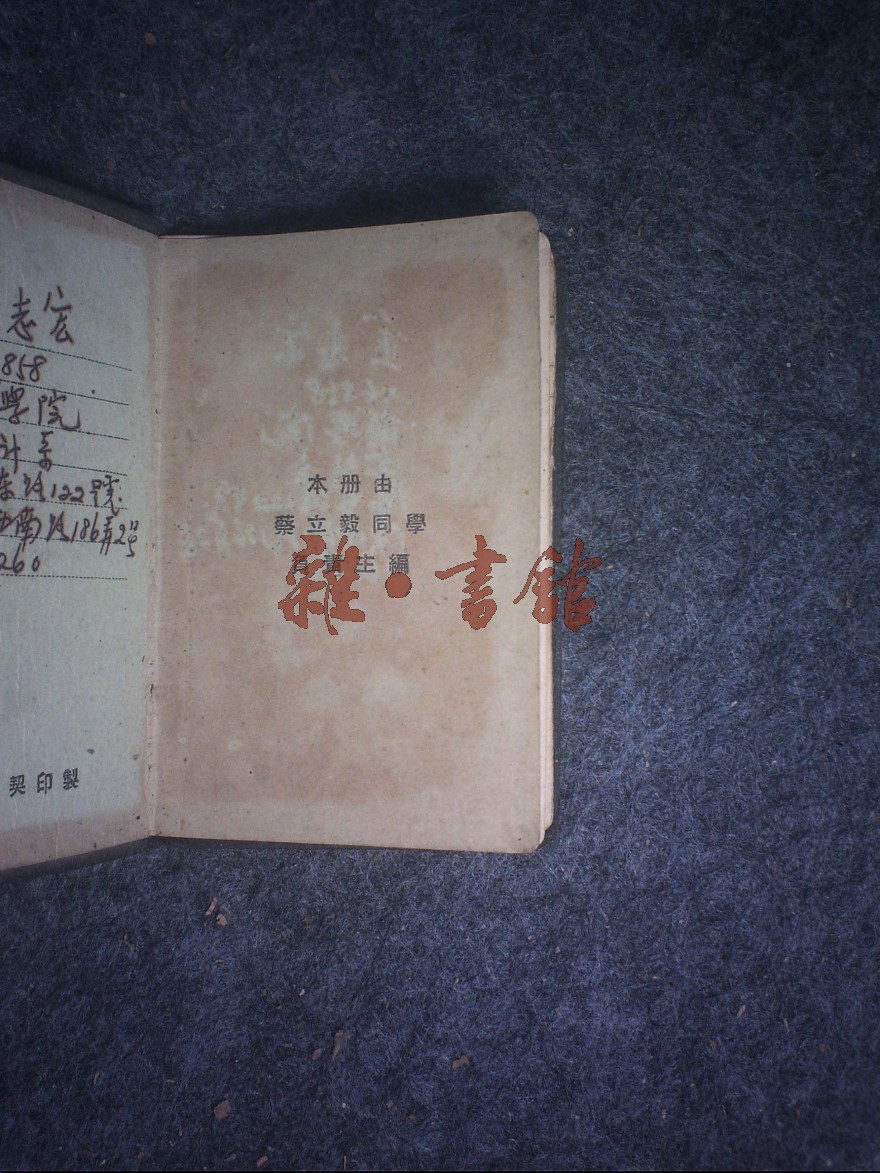 志宏
858
學院
计系
东路122號
西南路186弄2号
260
契印製
本册由
蔡立毅同學
負責主編
雜·書館